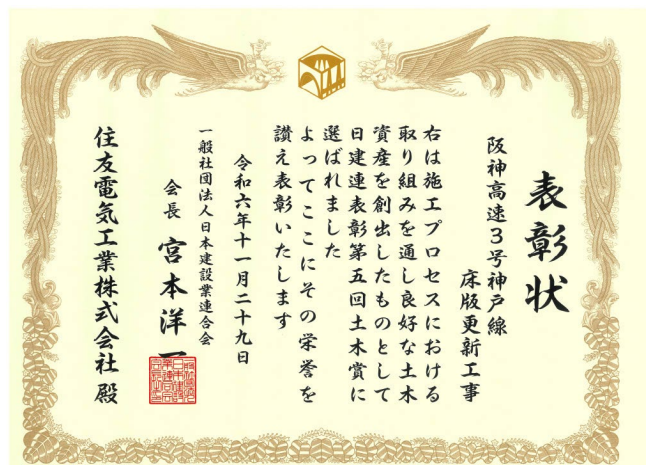 表彰状
阪神高速3号神戸線
床版更新工事
右は施工プロセスにおける
取り組みを通し良好な土木
資産を創出したものとして
日建連表彰第五回土木賞に
選ばれました
よってここにその栄誉を
讃え表彰いたします
令和六年十一月二十九日
一般社団法人日本建設業連合会
会長 宮本洋一
住友電気工業株式会社 殿